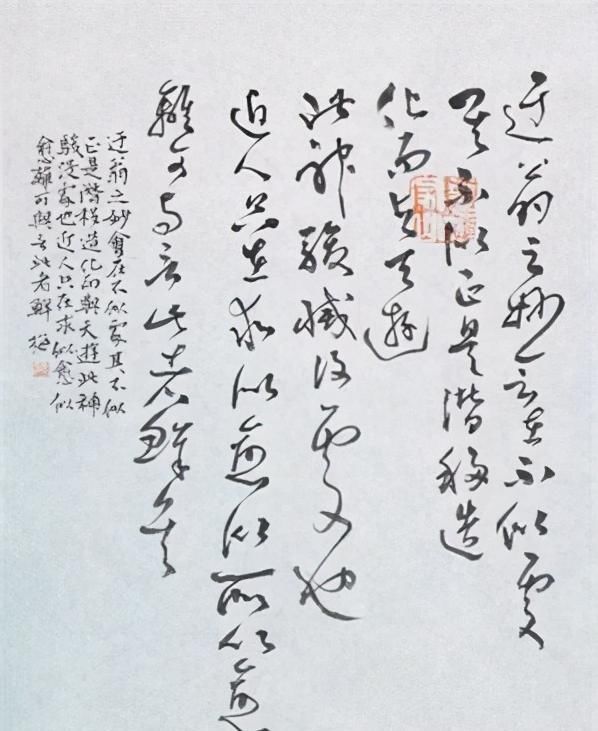 迂翁之妙會在不似處
其不似正是潛移造
化而與天遊
此神駿滅沒處也
近人只在求似愈似所以愈
離可與言此者鮮矣
迂翁之妙會在不似處其不似
正是潛移造化而與天遊此神
駿沒處也近人只在求似愈似
愈離可與言此者鮮